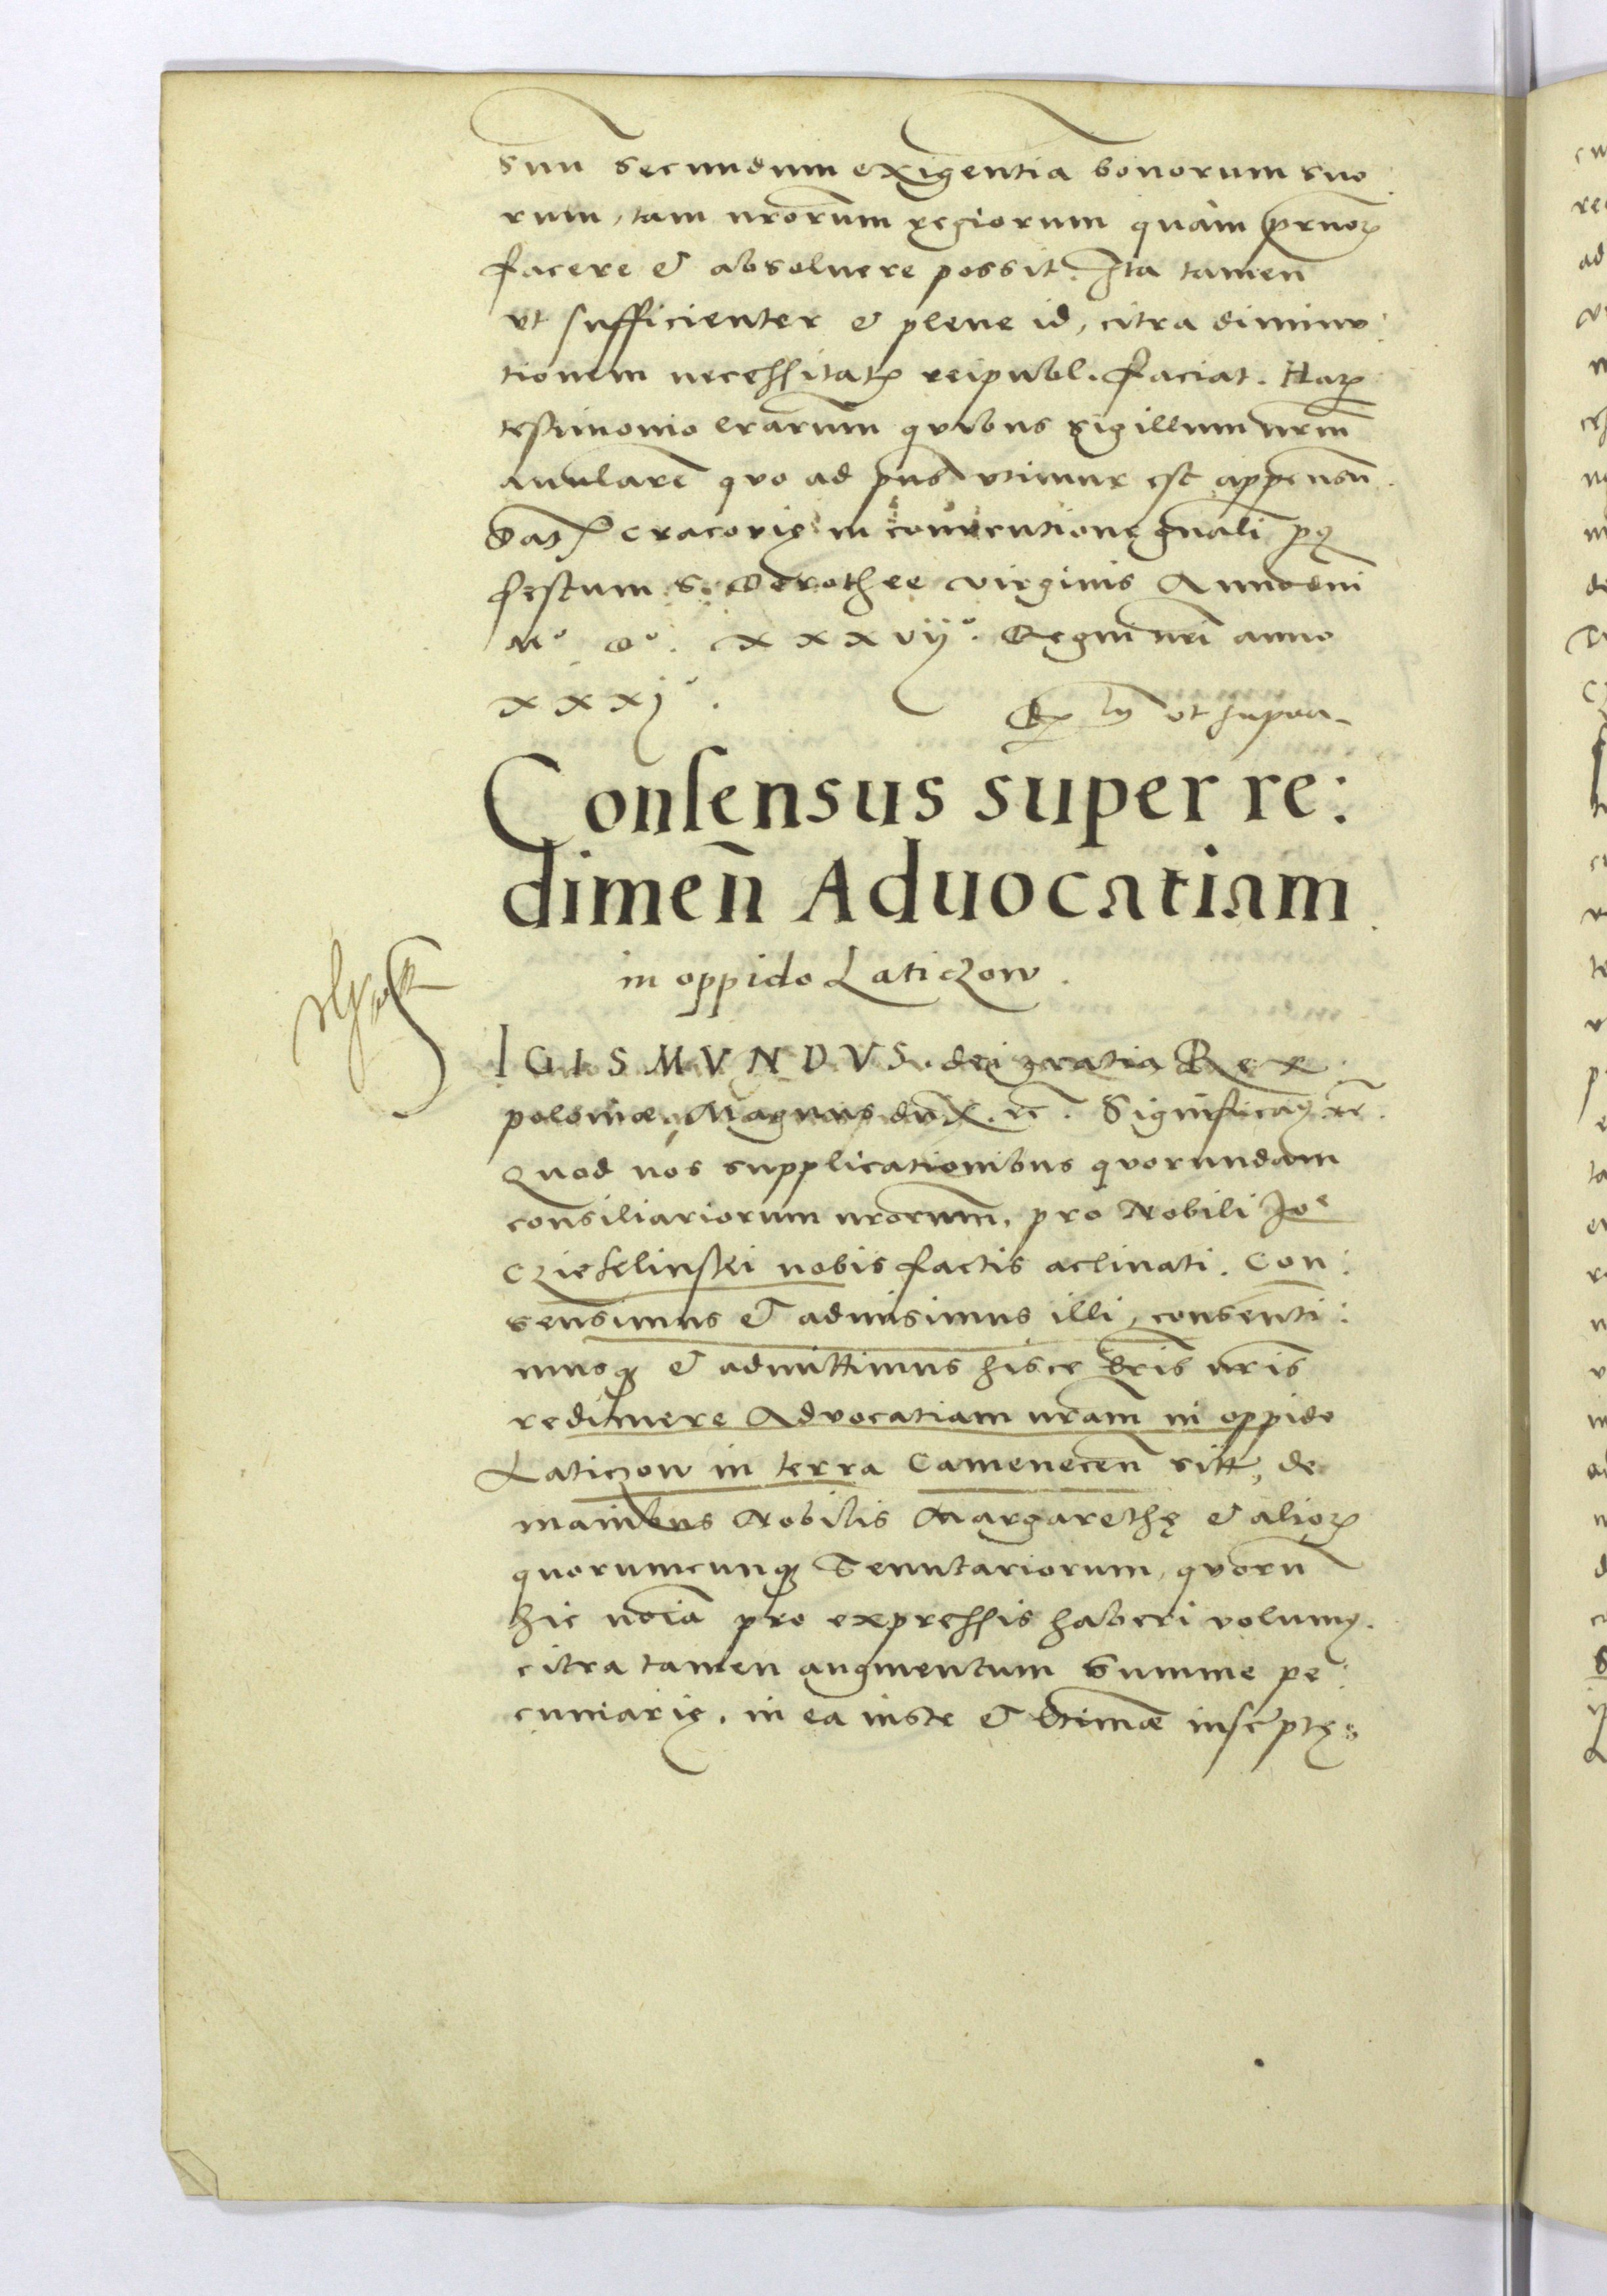 suu secundum exigentia bonorum suo:
rum, tam nrorum regiorum quam prnorꝝ
facere & absoluere possit. Ita tamen
vt sufficienter & plene id, citra diminu:
tionem necessitatꝝ reipubl. faciat. Harꝝ
testimonio lrarum quibus sigillum nrm
annularē quo ad pns vtimur est appensū.
Datꝝ Cracovię in conventione gnali pꝰ
festum S. Dorothee virginis Anno dni
Mº Dº. xxxvijº. Regni nri anno
xxxjº.
Rꝝ vt supra
Consensus super re:
dimen̄ Aduocatiam
in oppido Laticzow.
IGISMVNDVS. dei gratia Rex
poloniæ, Magnus dux. rc. Significamꝰ rc.
Quod nos supplicationibus quorundam
consiliariorum nrorum, pro Nobili Joe
Cziekelinski nobis factis aclinati. Con:
sensimus & admisimus illi, consenti:
musqꝫ & admittimus hisce lris nris
redimere Advocatiam nram in oppido
Laticzow in terra Camenecen̄ sitt, de
manibus Nobilis Margarethę & aliorꝝ
quorumcunqꝫ Tenutariorum, quorū
hic noia pro expressis haberi volumꝰ.
citra tamen augmentum Summe pe:
cuniarię, in ea iuste & ltimæ inscptę.